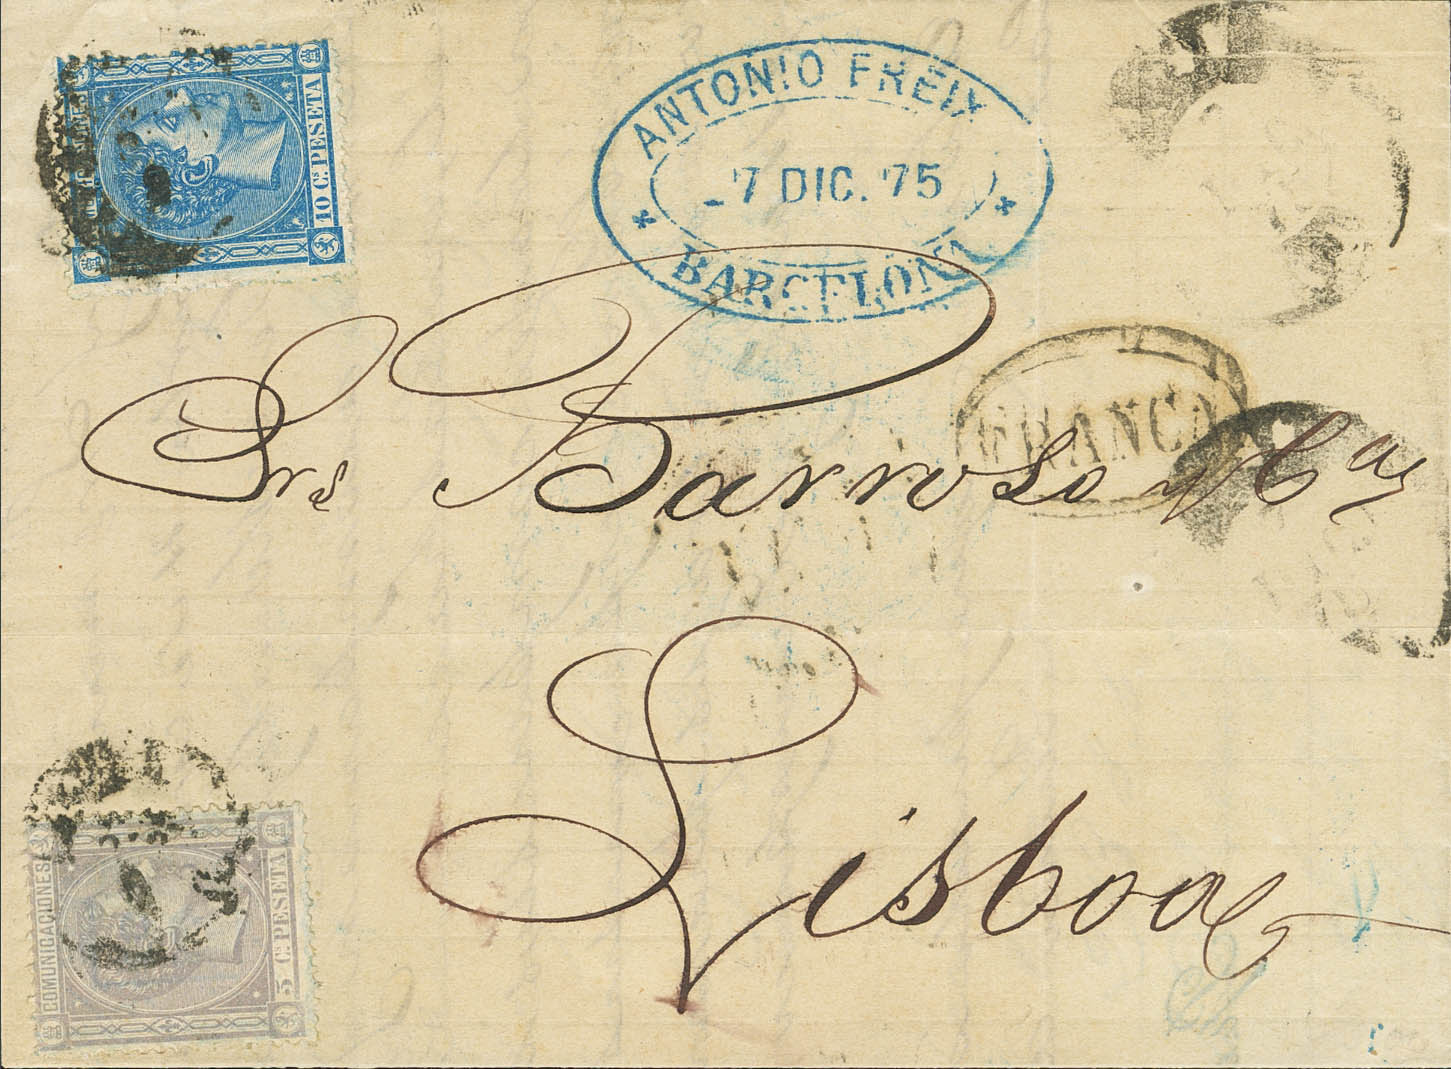 COMUNICACIONES
10 Cs. PESETA
ANTONIO FREIX
7 DIC. 75
BARCELONA
FRANCA
Srs Barroso y Cas
Lisboa
COMUNICACIONES
5 Cs. PESETA